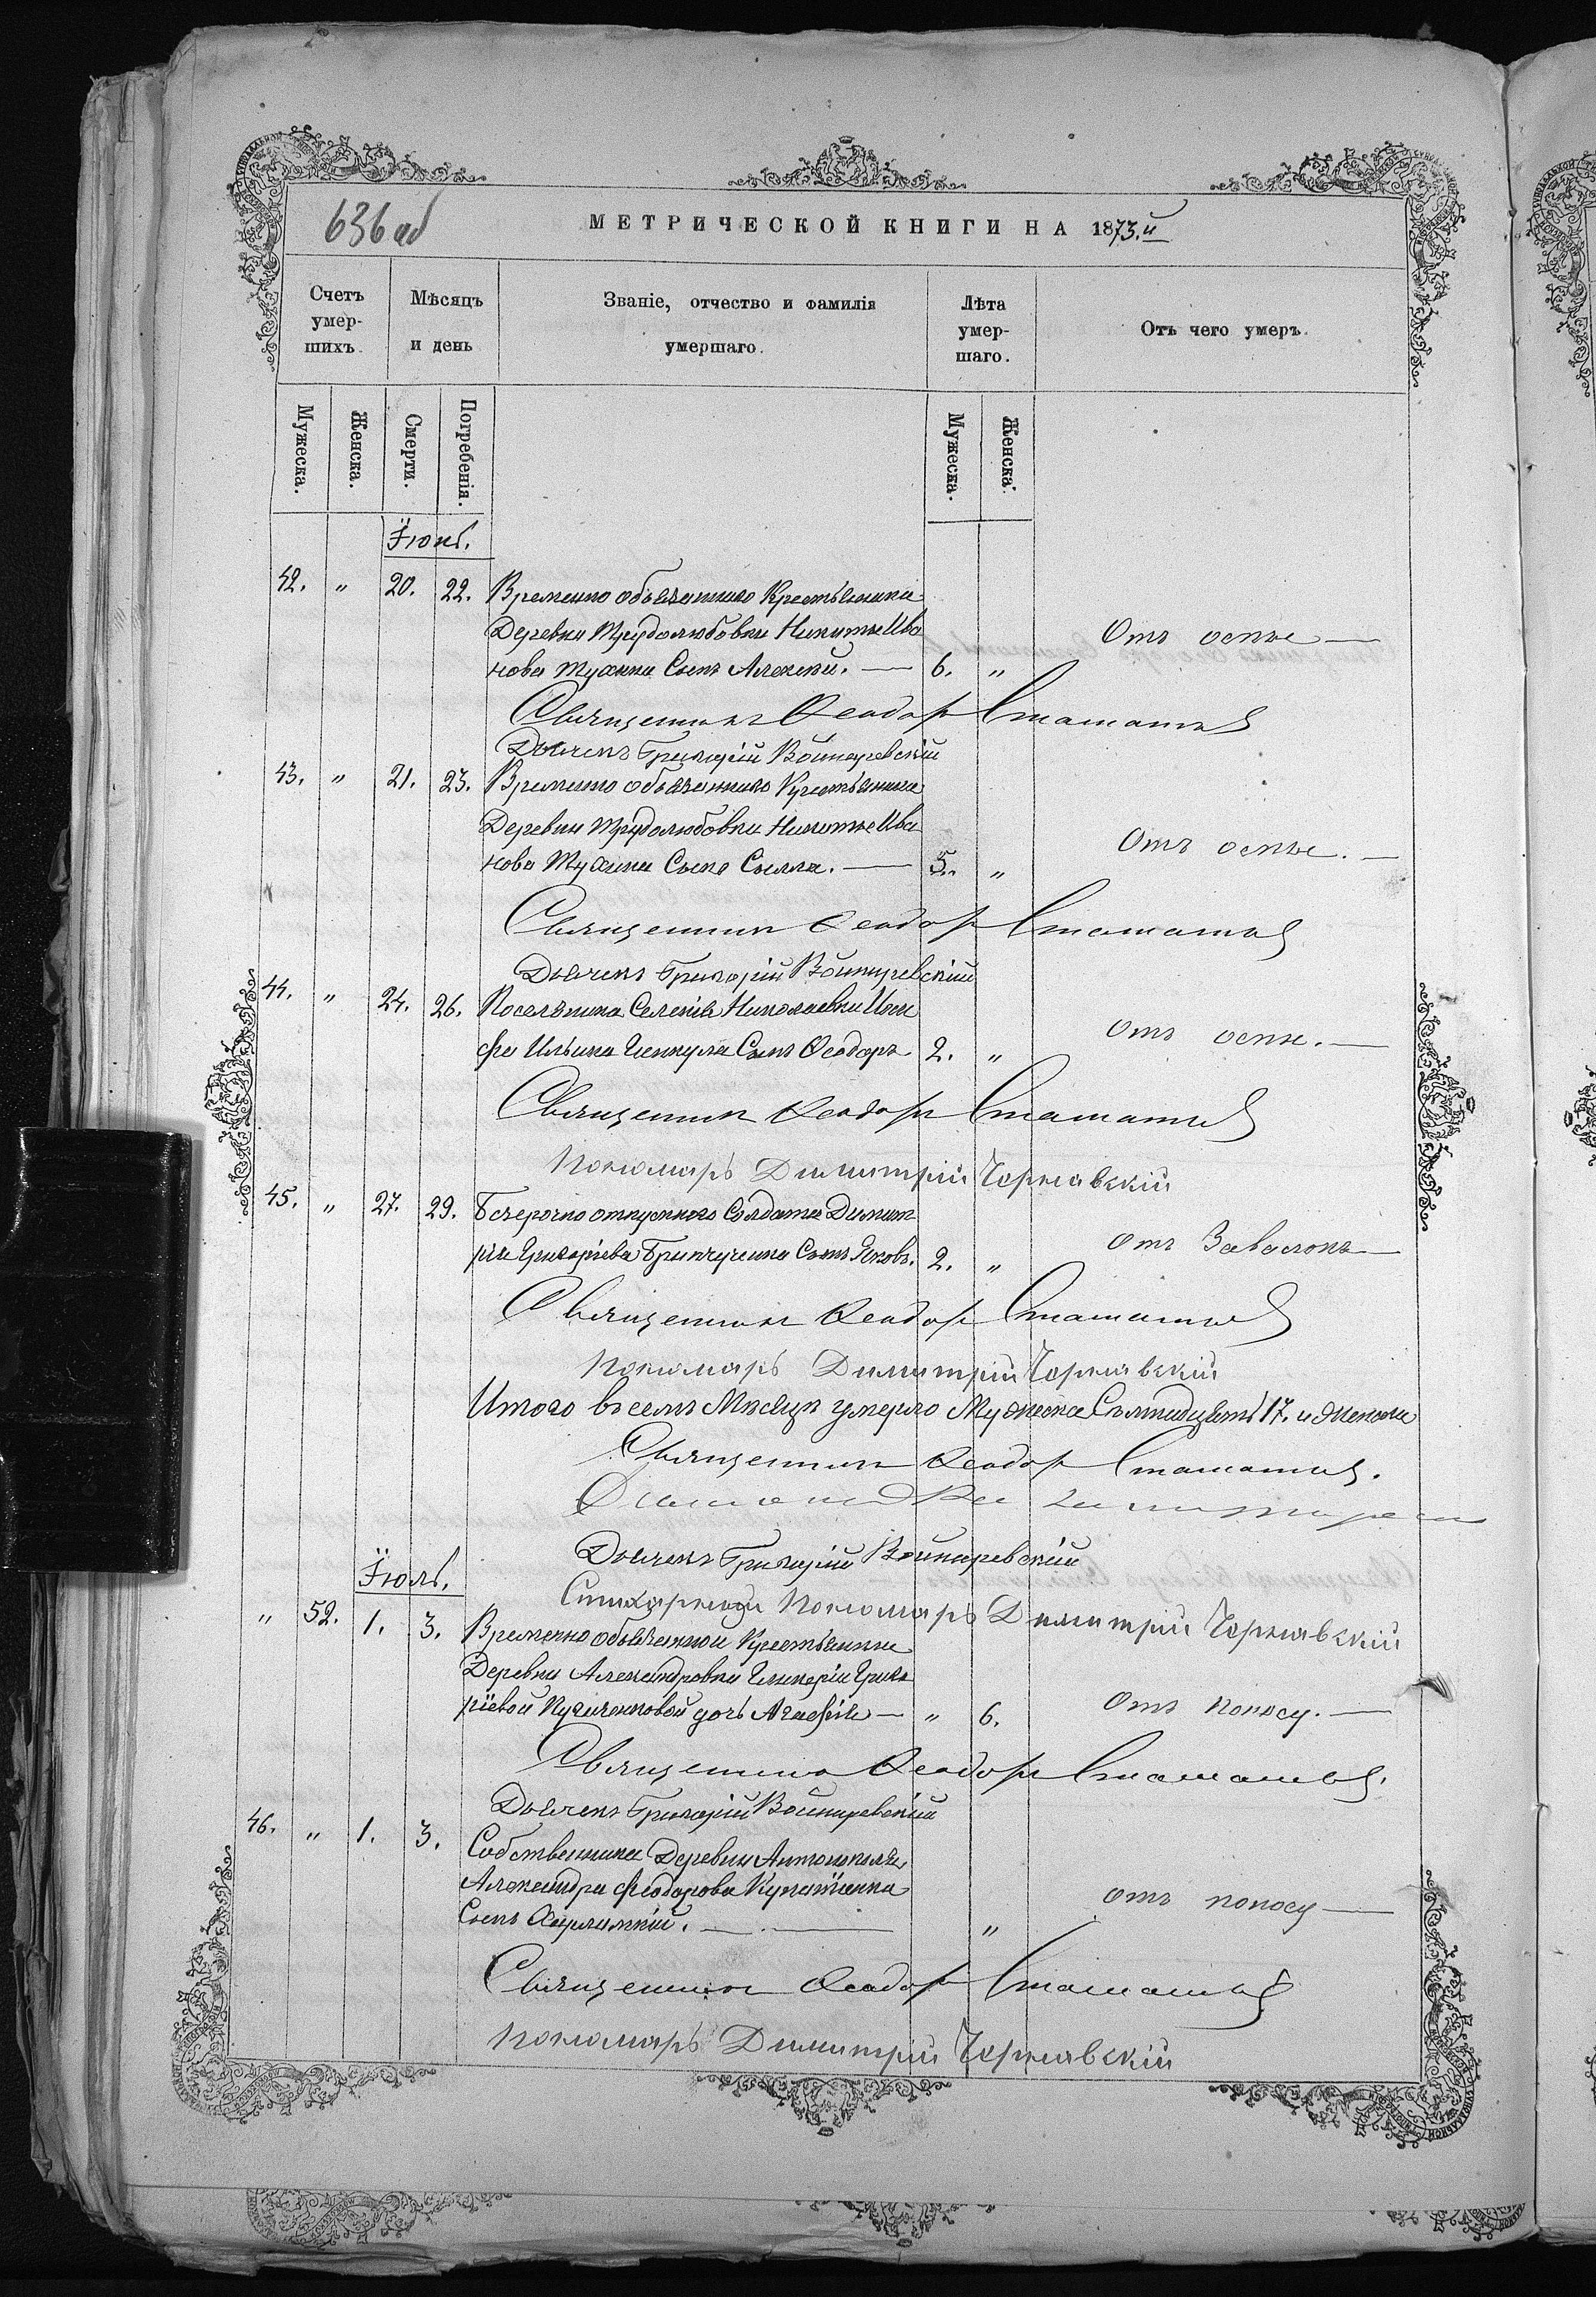 636 об
МЕТРИЧЕСКОЙ КНИГИ НА 1873.й
Счетъ умер-шихъ.
Мѣсяцъ и день
Званіе, отчество и фамилія умершаго.
Лѣта умер-шаго.
Отъ чего умеръ.
Мужеска.
Женска.
Смерти.
Погребенія.
Мужеска.
Женска.
Їюнь.
42. " 20. 22. Временно обязаннаго Крестьянина
Деревни Трудолюбовки Никиты Ива
нова Тухина Сынъ Алексѣй. — 6. " Отъ оспы —
Священникъ Ѳеодоръ Стаматьевъ
Дьячекъ Григорій Войнаревскій
43. " 21. 23. Временно обязаннаго Крестьянина
Деревни Трудолюбовки Никиты Ива
нова Тухина Сынъ Сылла. — 5. " Отъ оспы. —
Священникъ Ѳеодоръ Стаматьевъ
Дьячекъ Григорій Войнаревскій
44. " 24. 26. Поселянина Селенія Николаевки
Ильина Сынъ Ѳеодоръ. 2. " Отъ оспы. —
Священникъ Ѳеодоръ Стаматьевъ
Пономарь Димитрій Чернявскій
45. " 27. 29. Безсрочно отпускнаго Солдата Димит
рія Григорієва Сынъ Яковъ. 2. " Отъ Завалокъ —
Священникъ Ѳеодоръ Стаматьевъ
Пономарь Димитрій Чернявскій
Итого въ семъ Мѣсяцѣ умерло Мужеска 17. и Женска
Священникъ Ѳеодоръ Стаматьевъ.
Дьячекъ Григорій Войнаревскій
Стихарный Пономарь Димитрій Чернявскій
Їюль.
" 52. 1. 3. Временно обязанной Крестьянки
Деревни Александровки Гликеріи Григо
рїевой дочь Агафія — " 6. Отъ поносу. —
Священникъ Ѳеодоръ Стаматьевъ.
Дьячекъ Григорій Войнаревскій
46. " 1. 3. Собственника Деревни Антонополя,
Александра Феодорова
Сынъ Харлампій. — " отъ поносу —
Священникъ Ѳеодоръ Стаматьевъ
Пономарь Димитрій Чернявскій